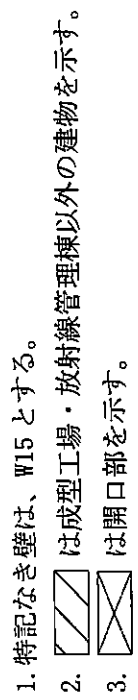 1. 特記なき壁は、W15とする。
2. は成型工場・放射線管理棟以外の建物を示す。
3. は開口部を示す。